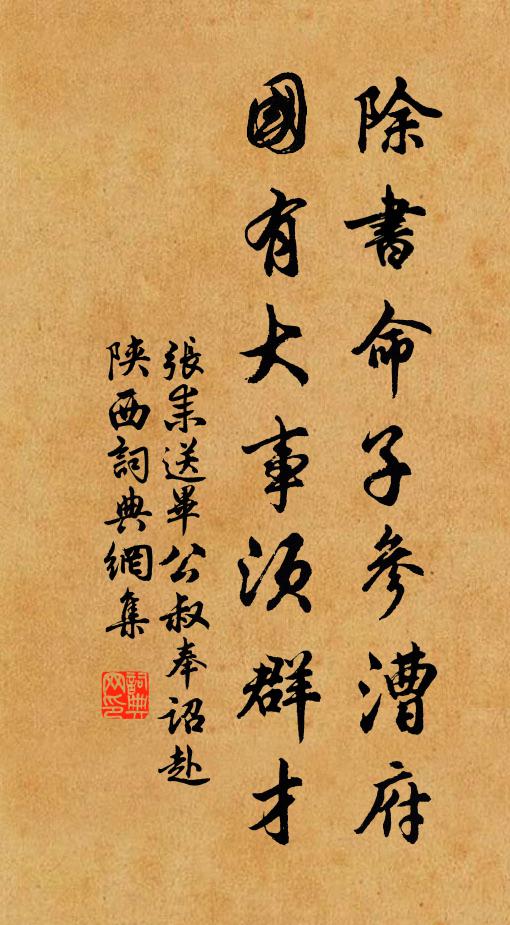 除書命子參漕府
國有大事須群才
張耒送畢公叔奉詔赴
陝西詞典網集
詞典網印